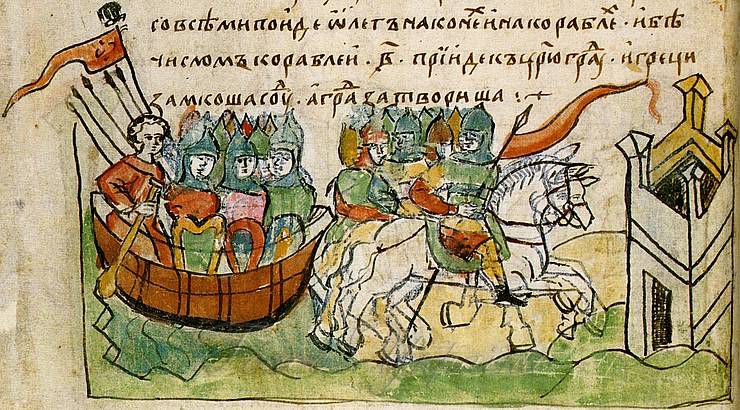 совсѣмипоидеѡлегънаконеинакорабле · ибѣ
числомъкораблеи · в҃ · прїидекъцр҃югра · игреци
замкошасоу · аградзатвориша :